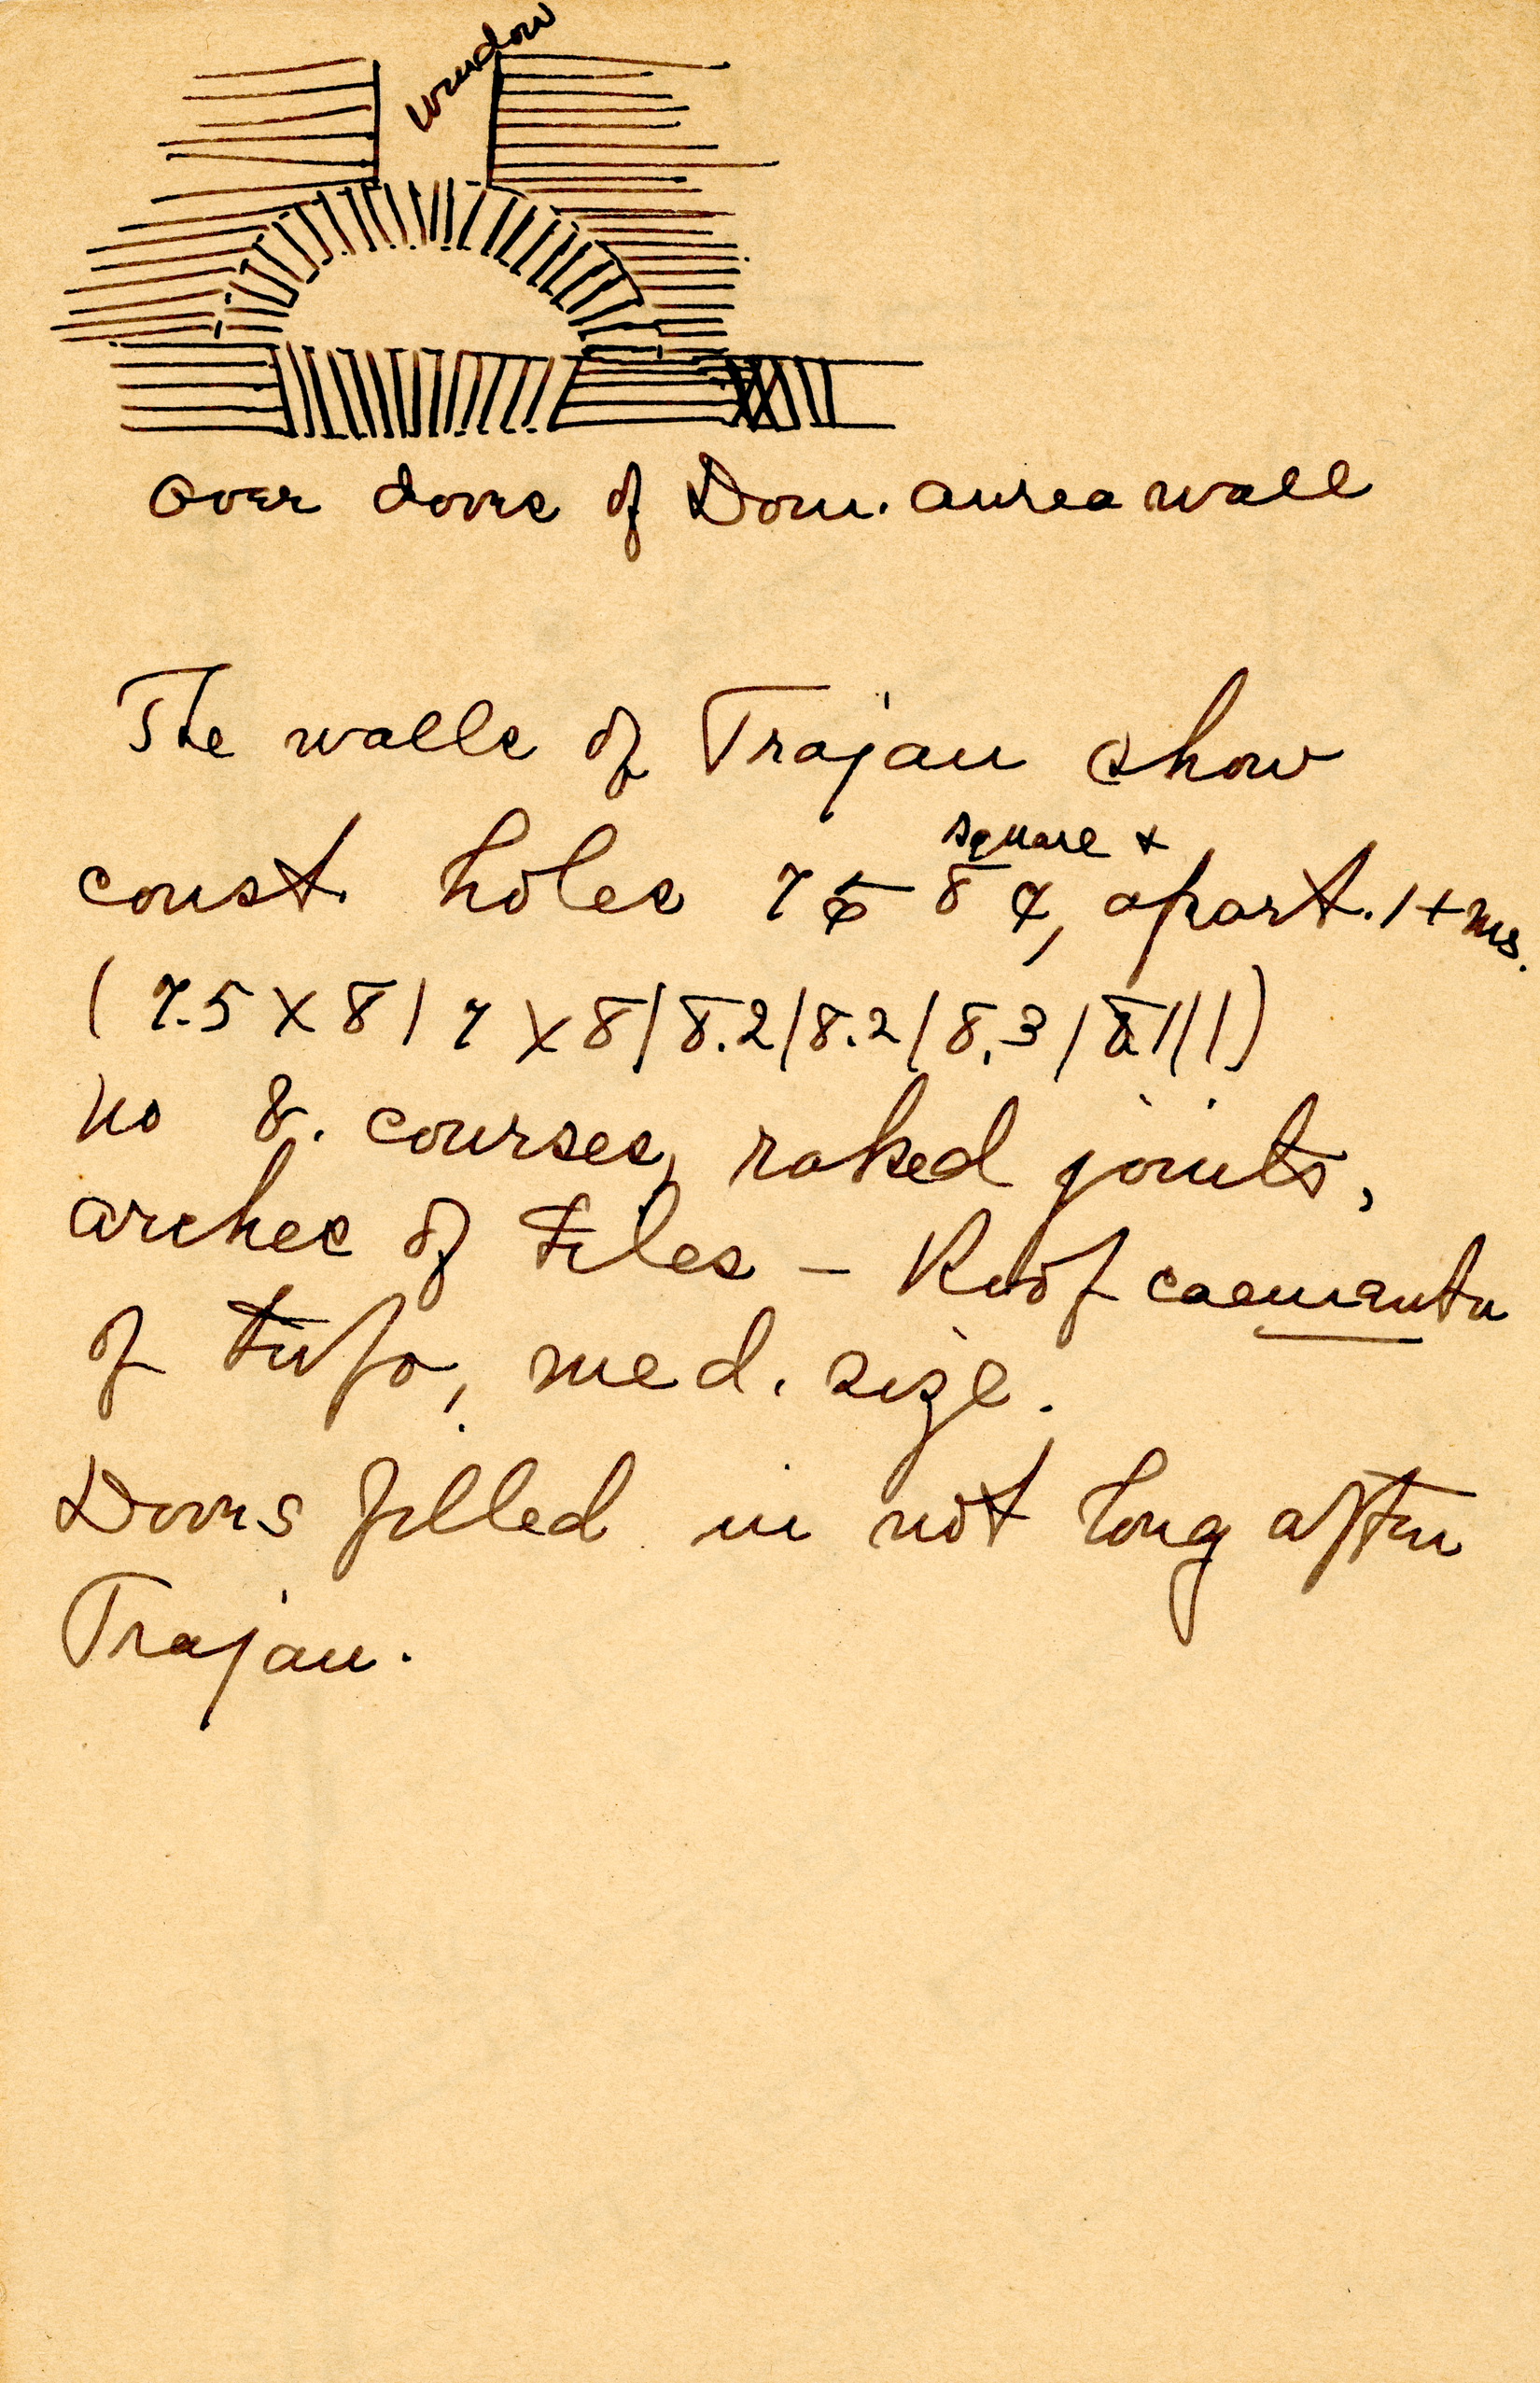 window
over doors of Dom. aurea wall
The walls of Trajan show
square +
const. holes 7 to 8 ¢, apart. 1+ ms.
(7.5 X 8 / 7 X 8 / 8.2 / 8.2 / 8.3 / 8 / / / )
no b. courses, raked joints,
arches of tiles – Roof caementa
of tufo, med. size.
Doors filled in not long after
Trajan.